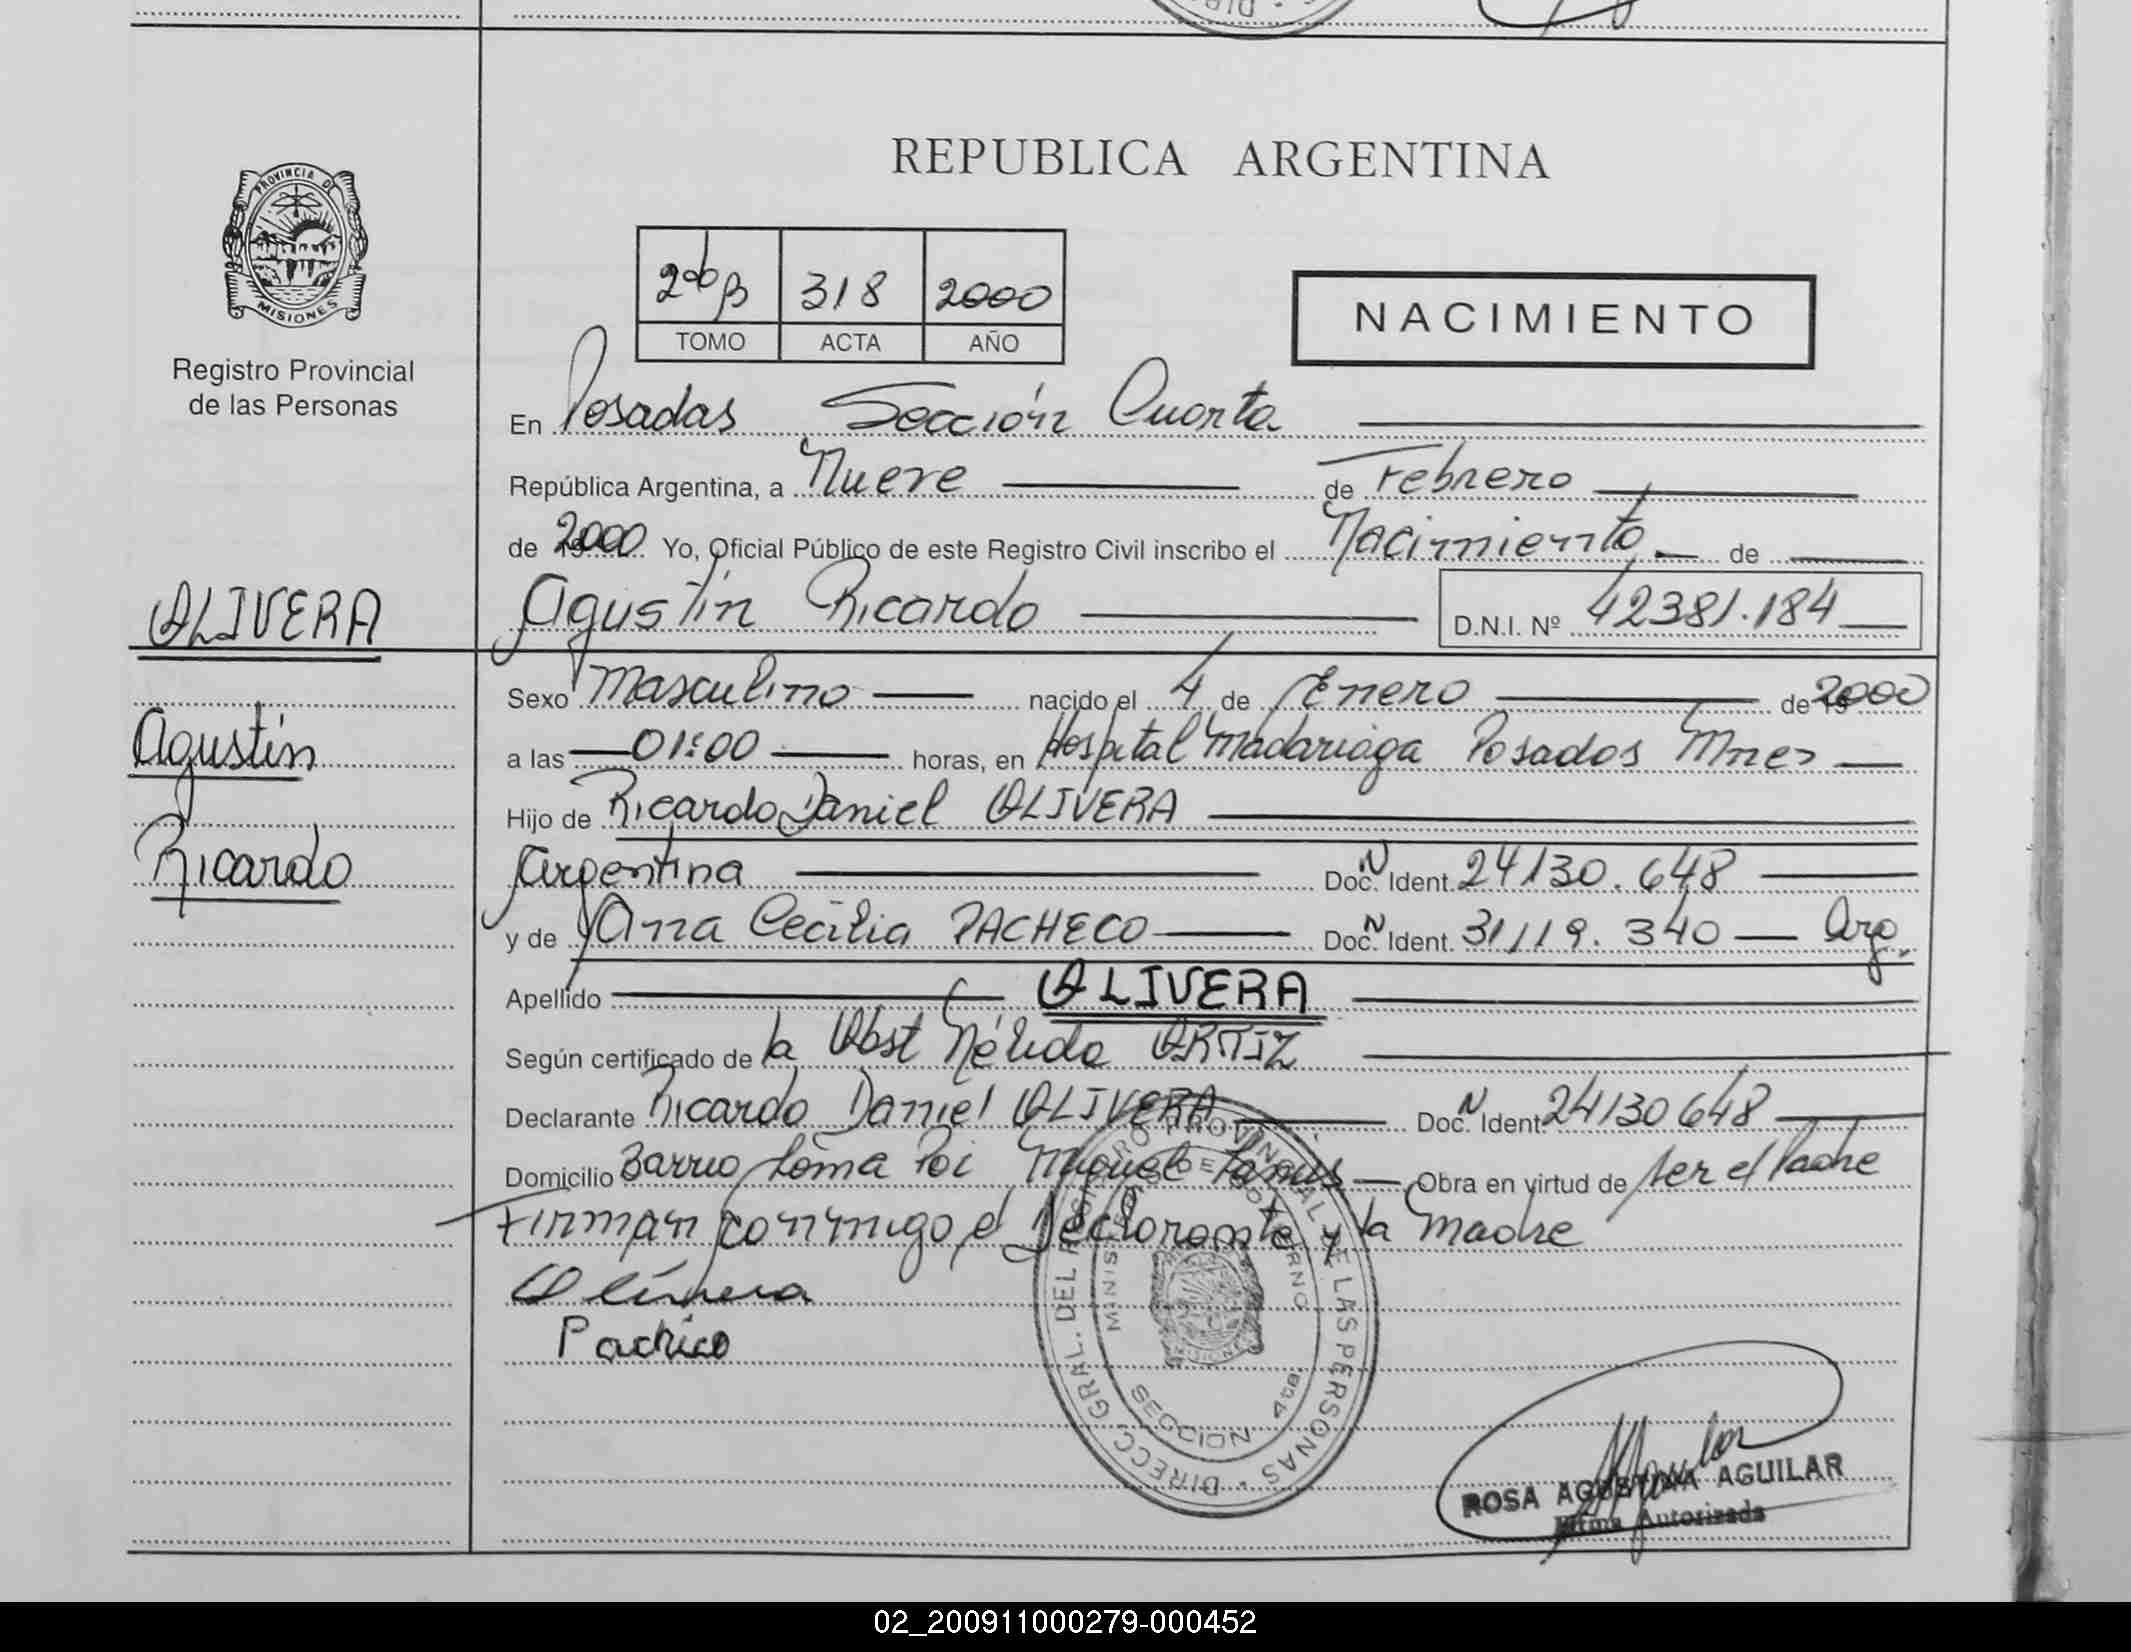 PROVINCIA DE
MISIONES
Registro Provincial
de las Personas
OLIVERA
Agustín
Ricardo
REPUBLICA ARGENTINA
2do B 318 2000
TOMO ACTA AÑO
NACIMIENTO
En Posadas Sección Cuarta
República Argentina, a Nueve de Febrero
de 2000 Yo, Oficial Público de este Registro Civil inscribo el Nacimiento de
Agustín Ricardo D.N.I. Nº 42381.184
Sexo Masculino nacido el 4 de Enero de 2000
a las 01:00 horas, en Hospital Madariaga Posadas Mnes
Hijo de Ricardo Daniel OLIVERA
Argentina Doc. N Ident. 24130.648
y de Ana Cecilia PACHECO Doc. N Ident. 31119.340 Arg.
Apellido OLIVERA
Según certificado de la Obst Nélida ORTIZ
Declarante Ricardo Daniel OLIVERA Doc. N Ident. 24130648
Domicilio Barrio Loma Poi Miguel Lanús Obra en virtud de ser el Padre
Firman conmigo el Declarante y la Madre
Olivera
Pacheco
DIRECC. GRAL. DEL REGISTRO PROVINCIAL DE LAS PERSONAS
MINISTERIO DE GOBIERNO
MISIONES
SECCION 4ta.
ROSA AGUSTINA AGUILAR
Firma Autorizada
02_200911000279-000452